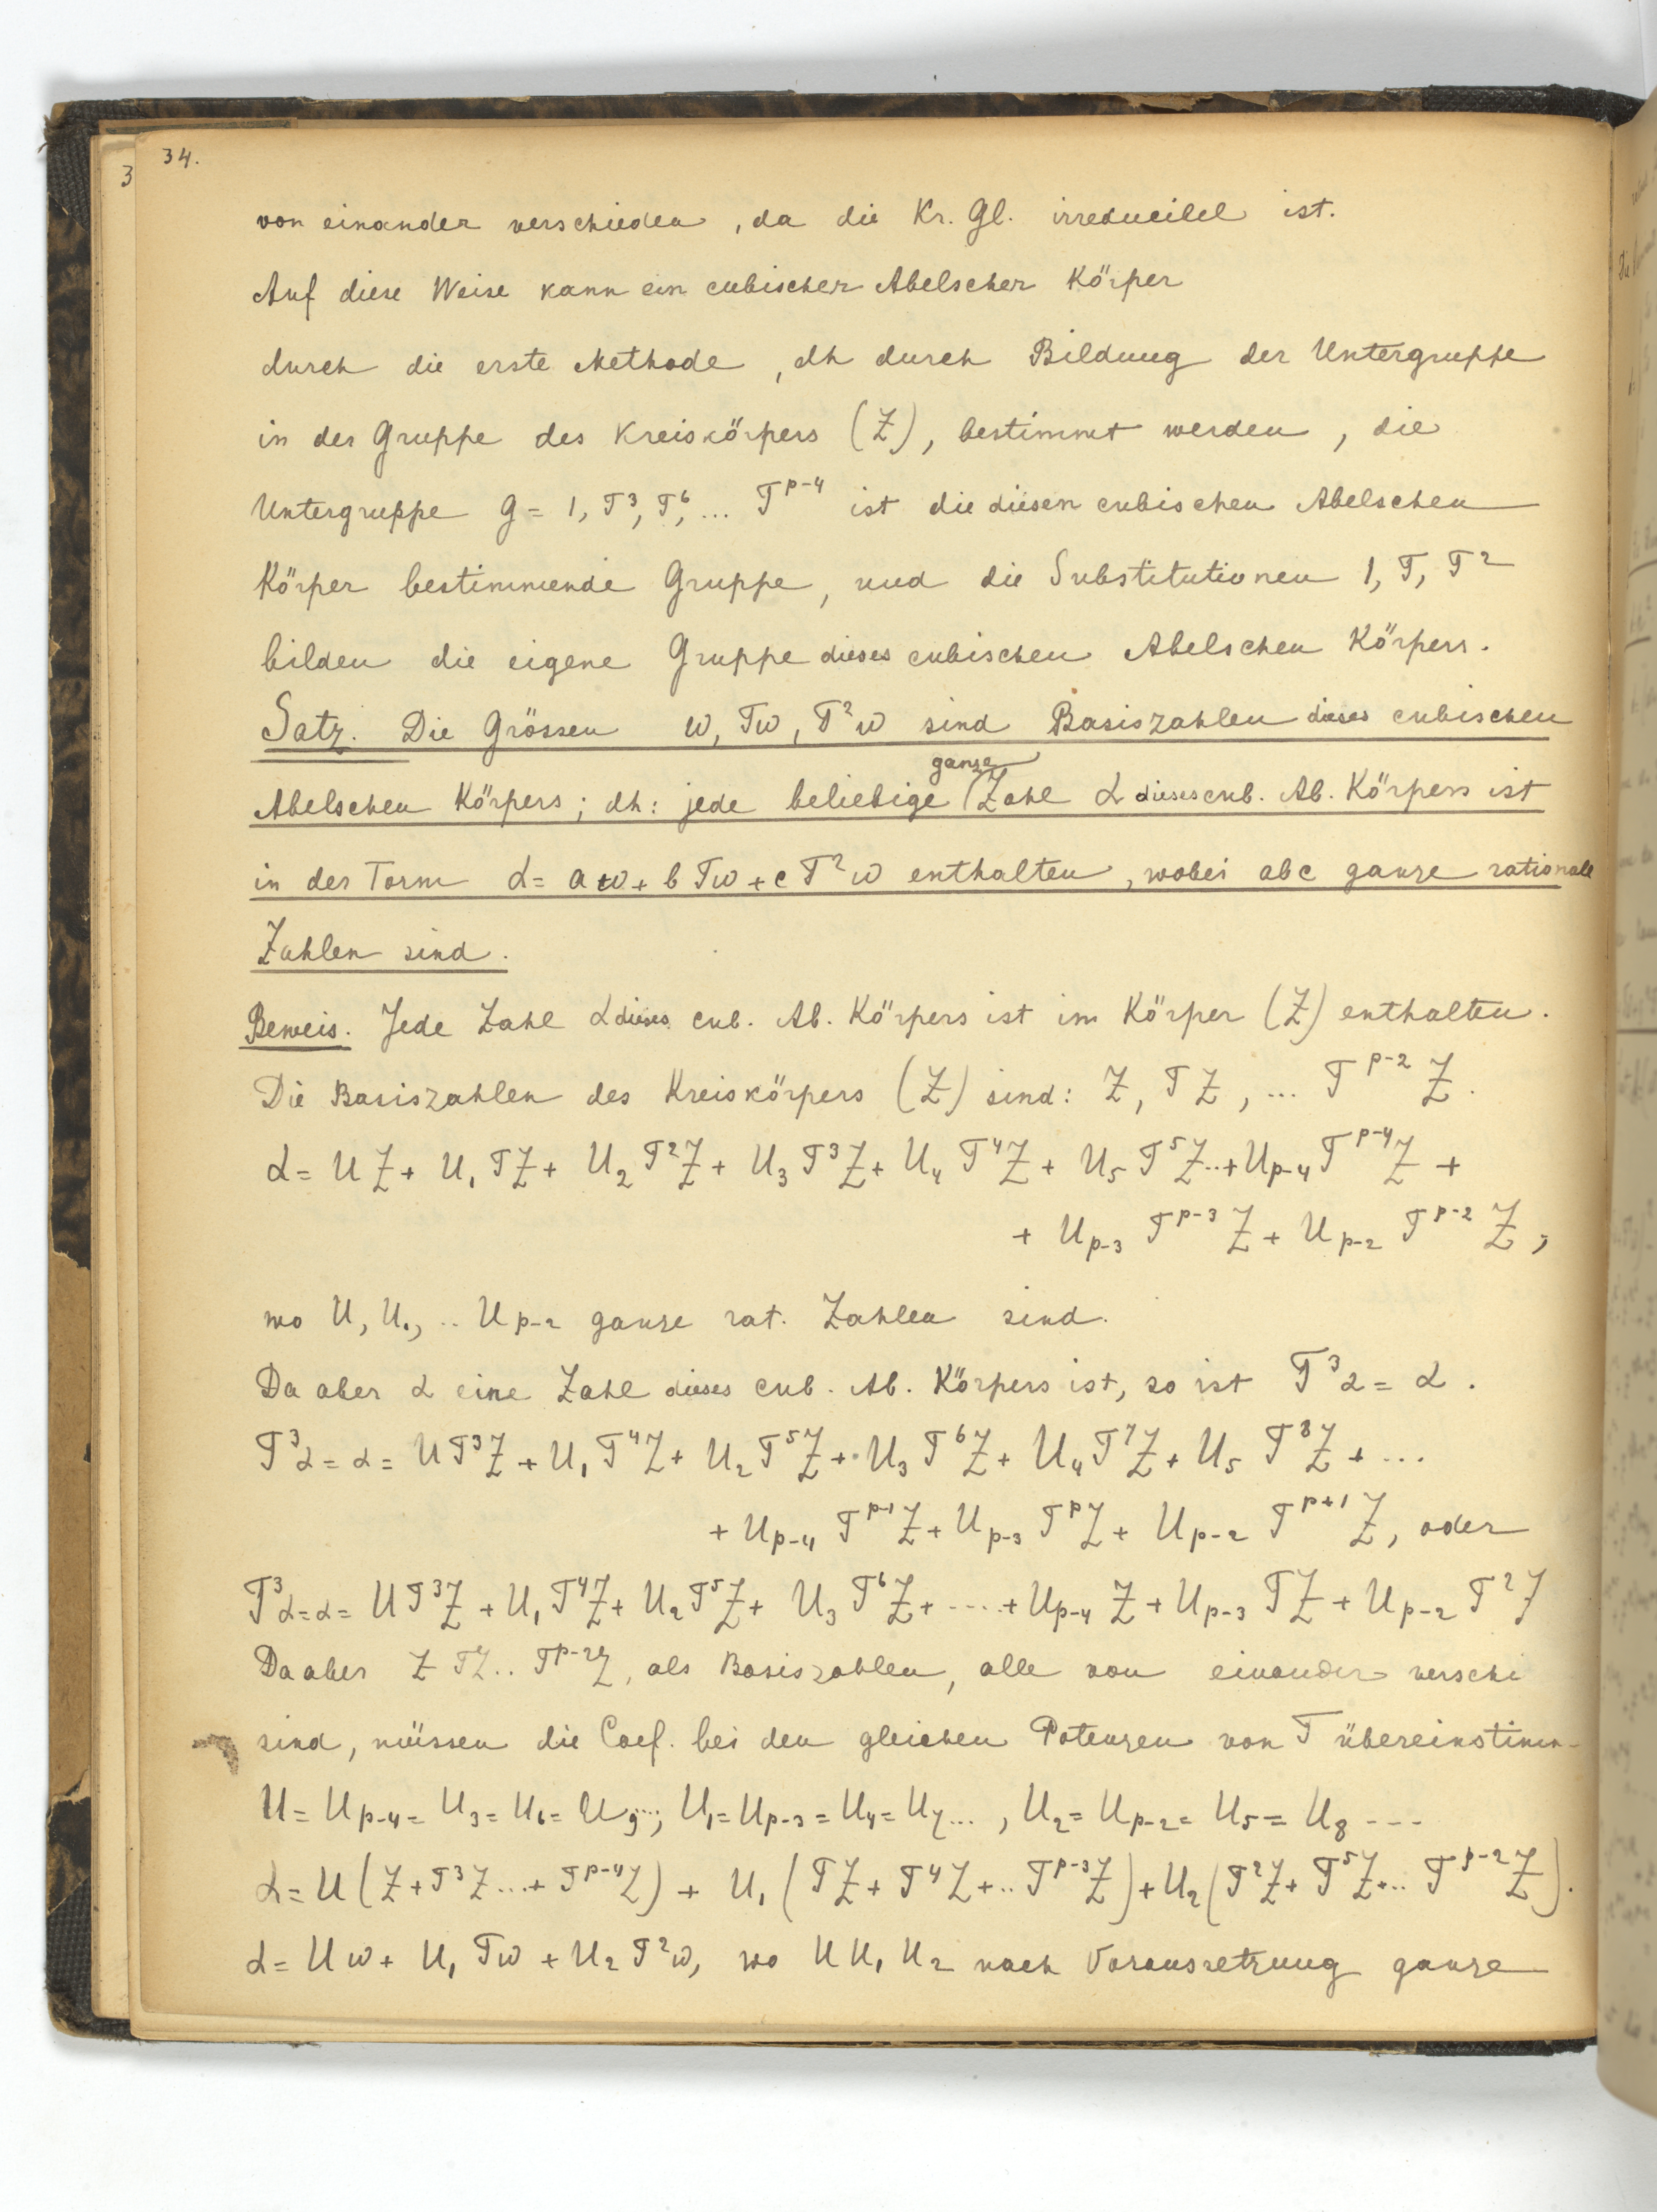 34.
3
von einander verschieden, da die Kr. Gl. irreducibel ist.
Auf diese Weise kann ein cubischer Abelscher Körper
durch die erste Methode, dh durch Bildung der Untergruppe
in der Gruppe des Kreiskörpers (Z), bestimmt werden, die
Untergruppe G = 1, T³, T⁶, ... T^{p-4} ist die diesen cubischen Abelschen
Körper bestimmende Gruppe, und die Substitutionen 1, T, T²
bilden die eigene Gruppe dieses cubischen Abelschen Körpers.
Satz. Die Grössen ω, Tω, T²ω sind Basiszahlen dieses cubischen
ganze
Abelschen Körpers; dh: jede beliebige Zahl α dieses cub. Ab. Körpers ist
in der Form α = aω + b Tω + c T²ω enthalten, wobei abc ganze rationale
Zahlen sind.
Beweis. Jede Zahl α dieses cub. Ab. Körpers ist im Körper (Z) enthalten.
Die Basiszahlen des Kreiskörpers (Z) sind: Z, TZ, ... T^{p-2} Z.
α = U Z + U₁ TZ + U₂ T²Z + U₃ T³Z + U₄ T⁴Z + U₅ T⁵Z .. + U_{p-4} T^{p-4} Z +
+ U_{p-3} T^{p-3} Z + U_{p-2} T^{p-2} Z,
wo U, U₁, .. U_{p-2} ganze rat. Zahlen sind.
Da aber α eine Zahl dieses cub. Ab. Körpers ist, so ist T³α = α.
T³α = α = U T³Z + U₁ T⁴Z + U₂ T⁵Z + U₃ T⁶Z + U₄ T⁷Z + U₅ T⁸Z + ...
+ U_{p-4} T^{p-1} Z + U_{p-3} T^{p} Z + U_{p-2} T^{p+1} Z, oder
T³α = α = U T³Z + U₁ T⁴Z + U₂ T⁵Z + U₃ T⁶Z + ..... + U_{p-4} Z + U_{p-3} TZ + U_{p-2} T²Z
Da aber Z TZ .. T^{p-2}Z, als Basiszahlen, alle von einander verschi
sind, müssen die Coef. bei den gleichen Potenzen von T übereinstimm-
U = U_{p-4} = U₃ = U₆ = U₉ ...; U₁ = U_{p-3} = U₄ = U₇ ..., U₂ = U_{p-2} = U₅ = U₈ ---
α = U (Z + T³Z ... + T^{p-4}Z) + U₁ (TZ + T⁴Z + .. T^{p-3}Z) + U₂ (T²Z + T⁵Z + .. T^{p-2}Z).
α = U ω + U₁ Tω + U₂ T²ω, wo U U₁ U₂ nach Voraussetzung ganze